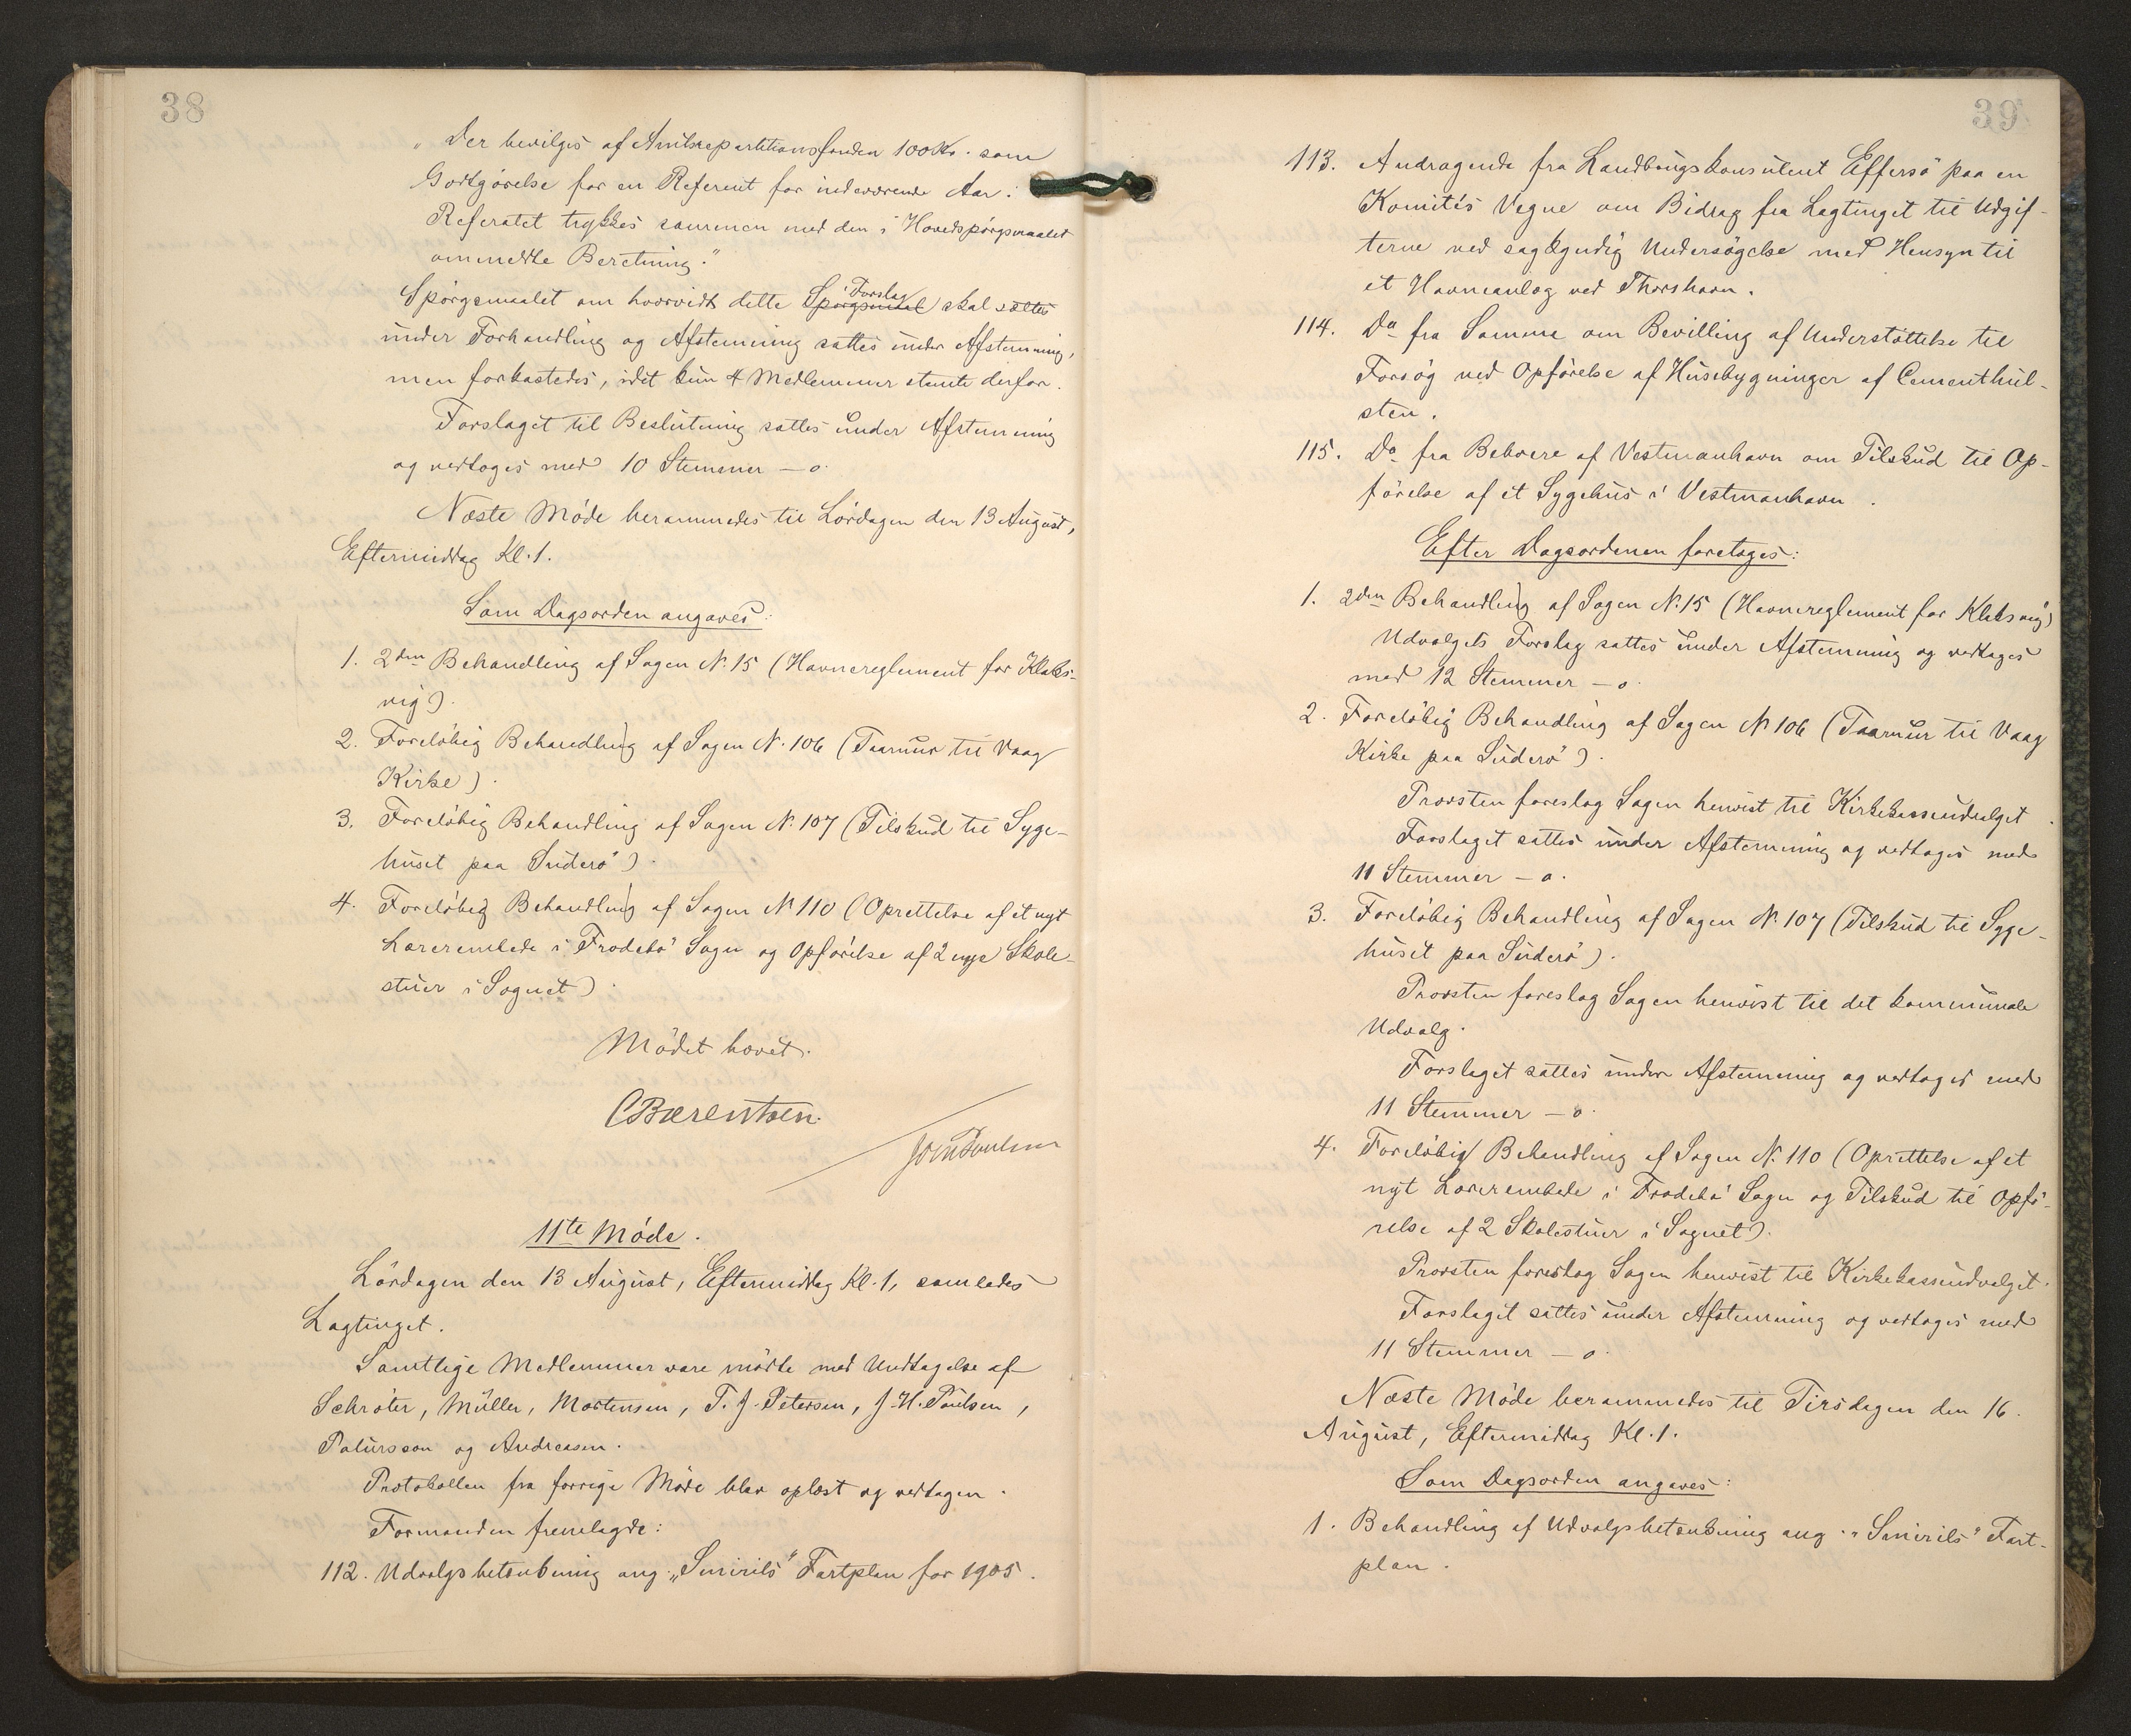 38
„Der bevilges af Amtsrepartitionsfonden 100 Kr. som
Godtgörelse for en Referent for indeværende Aar.
Referatet trykkes sammen med den i Hovedspörgsmaalet
ommeldte Beretning.“
Spörgsmaalet om hvorvidt dette Spörgsmaal Forslag skal sættes
under Forhandling og Afstemning sattes under Afstemning,
men forkastedes, idet kun 4 Medlemmer stemte derfor.
Forslaget til Beslutning sattes under Afstemning
og vedtoges med 10 Stemmer – o.
Næste Möde berammedes til Lördagen den 13 August,
Eftermiddag Kl. 1.
Som Dagsorden angaves:
1. 2den Behandling af Sagen No. 15 (Havnereglement for Klaks-
vig).
2. Forelöbig Behandling af Sagen No. 106 (Taarnur til Vaag
Kirke).
3. Forelöbig Behandling af Sagen No. 107 (Tilskud til Syge-
huset paa Suderö).
4. Forelöbig Behandling af Sagen No. 110 (Oprettelse af et nyt
Lærerembede i Frodebö Sogn og Opförelse af 2 nye Skole-
stuer i Sognet).
Mödet hævet.
CBærentsen.
11te Möde.
Lördagen den 13 August, Eftermiddag Kl. 1, samledes
Lagtinget.
Samtlige Medlemmer vare mödte med Undtagelse af
Schröter, Müller, Mortensen, T. J. Petersen, J. H. Poulsen,
Patursson og Andreasen.
Protokollen fra forrige Möde blev oplæst og vedtagen.
Formanden fremlagde:
112. Udvalgsbetænkning ang. „Smirils“ Fartplan for 1905.
39
113. Andragende fra Landbrugskonsulent Effersö paa en
Komités Vegne om Bidrag fra Lagtinget til Udgif-
terne ved sagkyndig Undersögelse med Hensyn til
et Havneanlæg ved Thorshavn.
114. Do fra Samme om Bevilling af Understöttelse til
Forsög ved Opförelse af Husebygninger af Cementhul-
sten.
115. Do fra Beboere af Vestmanhavn om Tilskud til Op-
förelse af et Sygehus i Vestmanhavn.
Efter Dagsordenen foretoges:
1. 2den Behandling af Sagen No. 15 (Havnereglement for Klaksvig)
Udvalgets Forslag sattes under Afstemning og vedtoges
med 12 Stemmer – o.
2. Forelöbig Behandling af Sagen No 106 (Taarnur til Vaag
Kirke paa Suderö).
Provsten foreslog Sagen henvist til Kirkekasseudvalget.
Forslaget sattes under Afstemning og vedtoges med
11 Stemmer – o.
3. Forelöbig Behandling af Sagen No. 107 (Tilskud til Syge-
huset paa Suderö).
Provsten foreslog Sagen henvist til det kommunale
Udvalg.
Forslaget sattes under Afstemning og vedtoges med
11 Stemmer – o.
4. Forelöbig Behandling af Sagen No. 110 (Oprettelse af et
nyt Lærerembede i Frodebö Sogn og Tilskud til Opfö-
relse af 2 Skolestuer i Sognet).
Provsten foreslog Sagen henvist til Kirkekasseudvalget.
Forslaget sattes under Afstemning og vedtoges med
11 Stemmer – o.
Næste Möde berammedes til Tirsdagen den 16.
August, Eftermiddag Kl. 1.
Som Dagsorden angaves:
1. Behandling af Udvalgsbetænkning ang. „Smirils“ Fart-
plan.